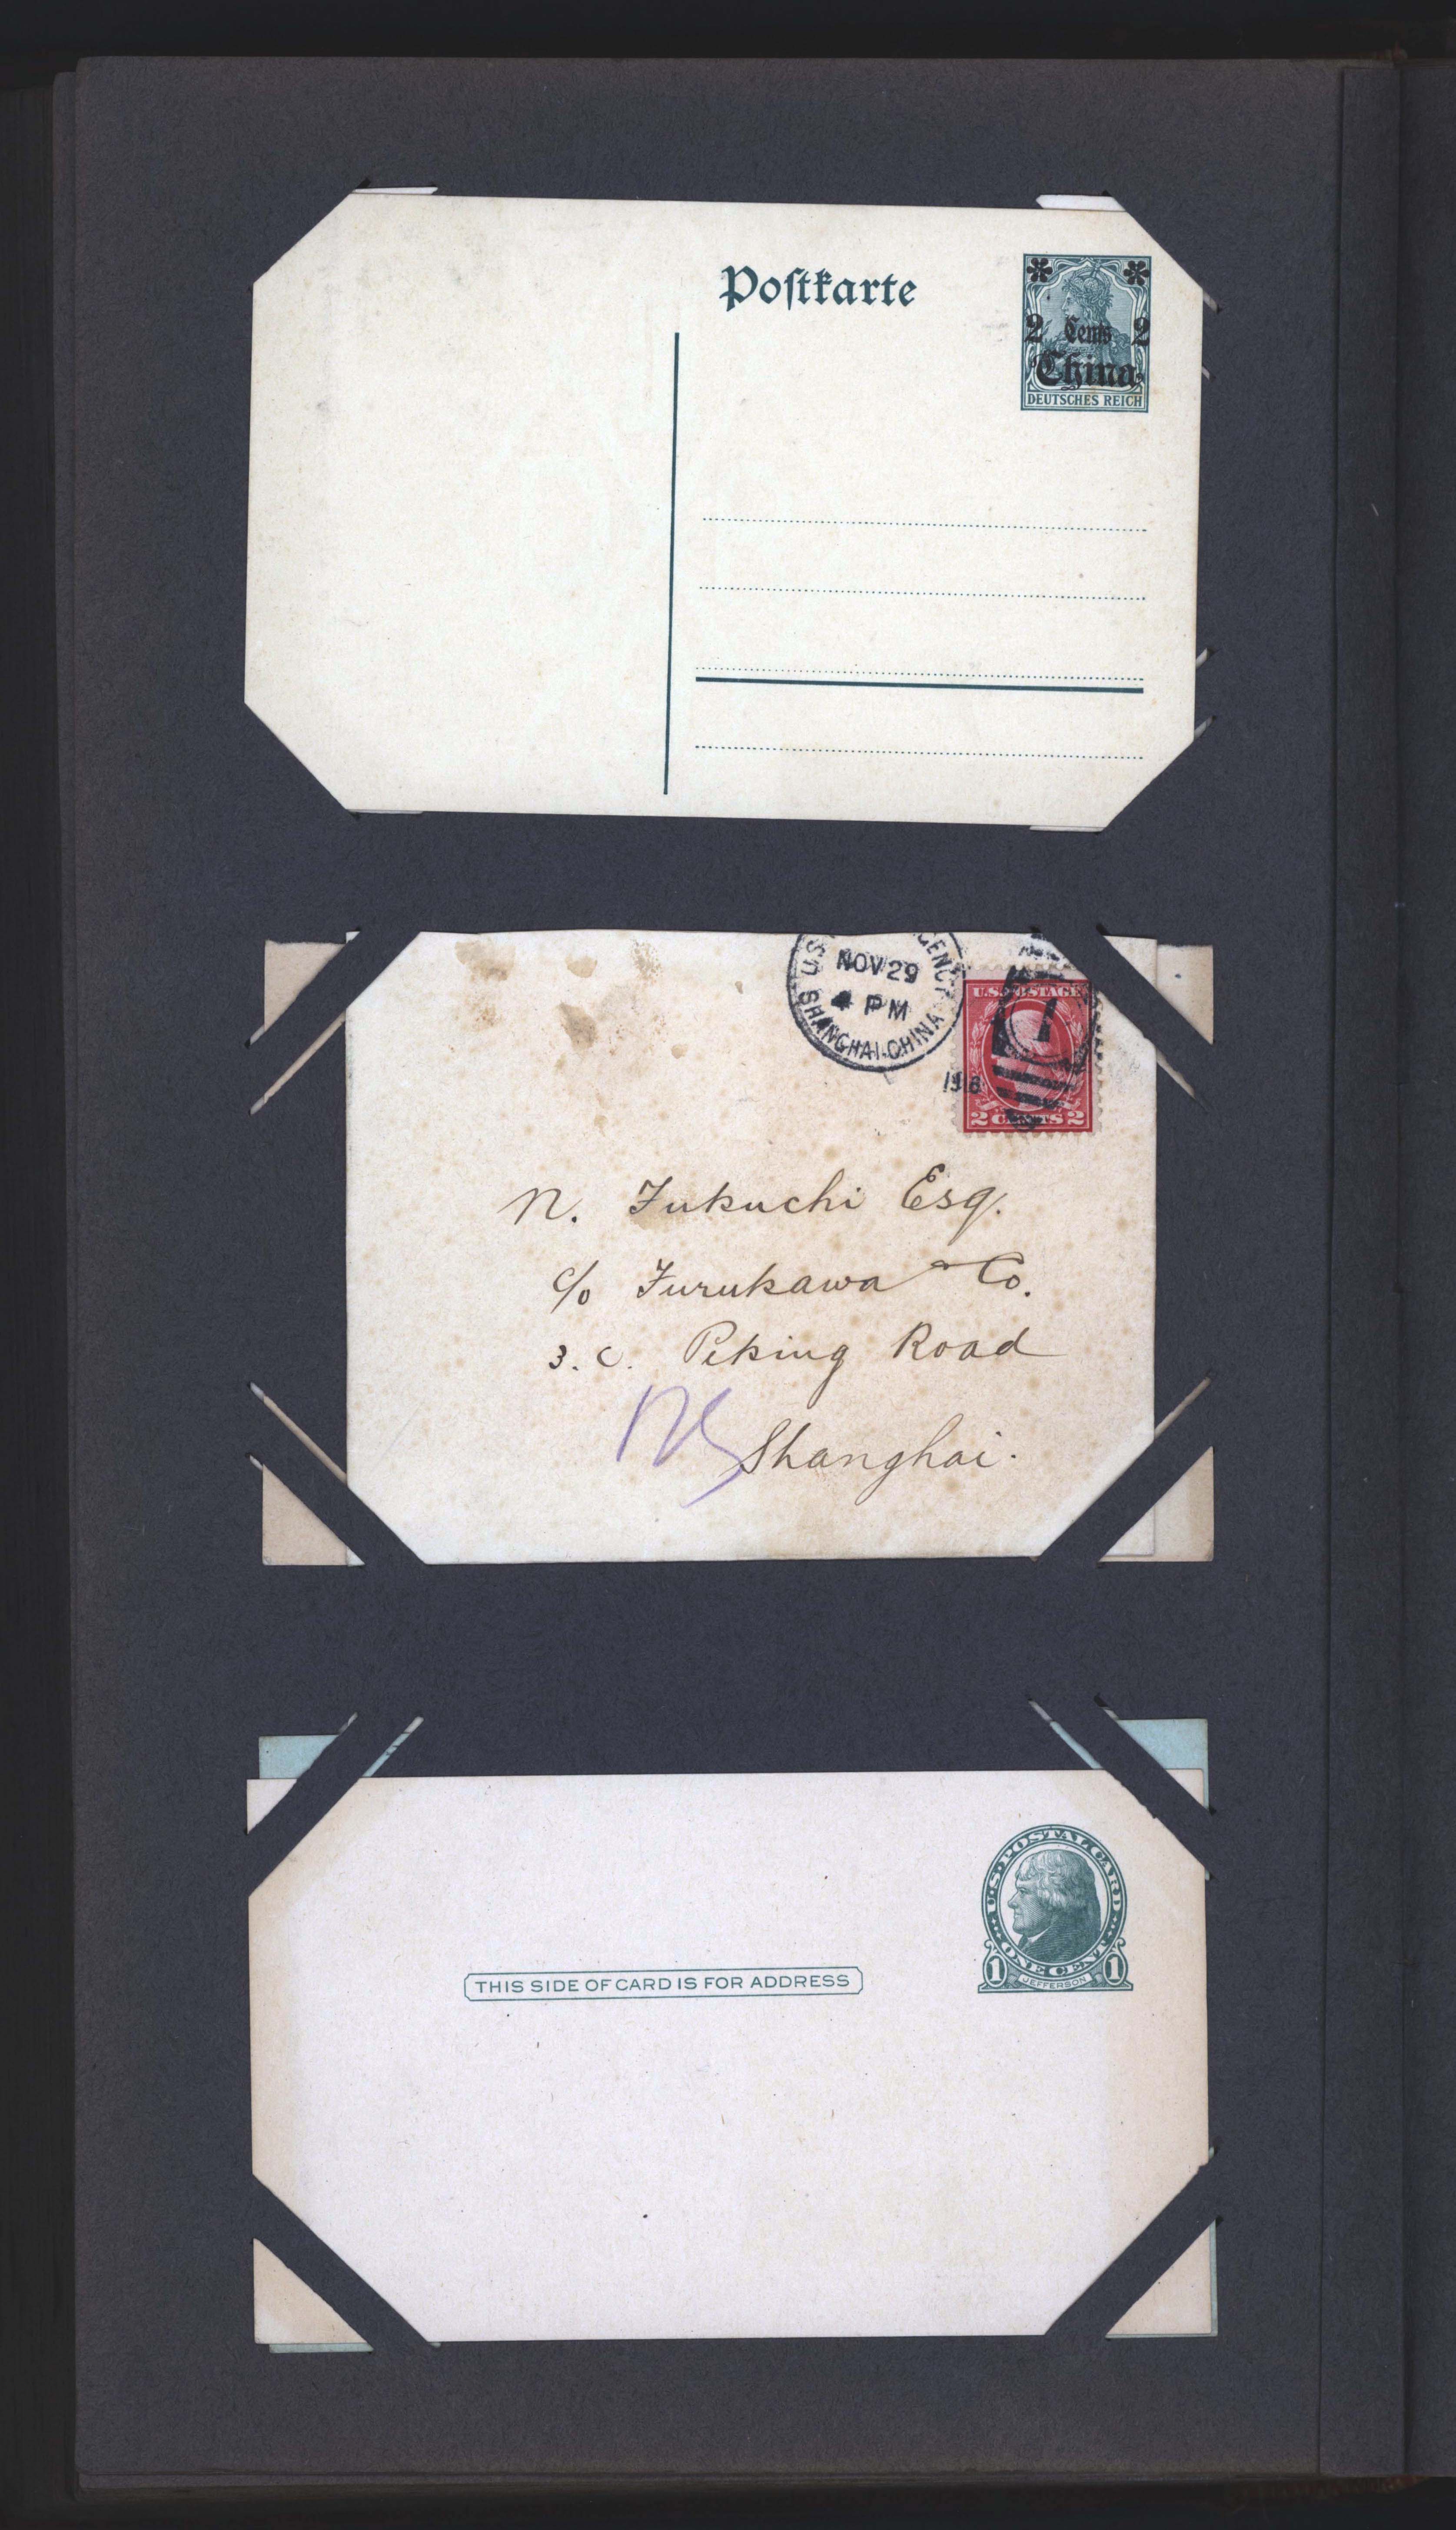 Postkarte
2 Cents 2
China
DEUTSCHES REICH
U.S. GENCY
NOV 29
4 PM
SHANGHAI·CHINA
U.S. POSTAGE
1
2 CENTS 2
N. Fukuchi Esq.
c/o Furukawa & Co.
3.C. Peking Road
Shanghai.
U·S·POSTAL CARD
ONE CENT
1 JEFFERSON 1
THIS SIDE OF CARD IS FOR ADDRESS